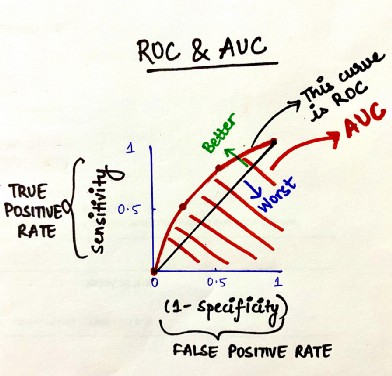 ROC & AUC
This curve
is ROC
AUC
Better
Worst
1
0.5
TRUE
POSITIVE
RATE
Sensitivity
0
0.5
1
(1- specificity)
FALSE POSITIVE RATE